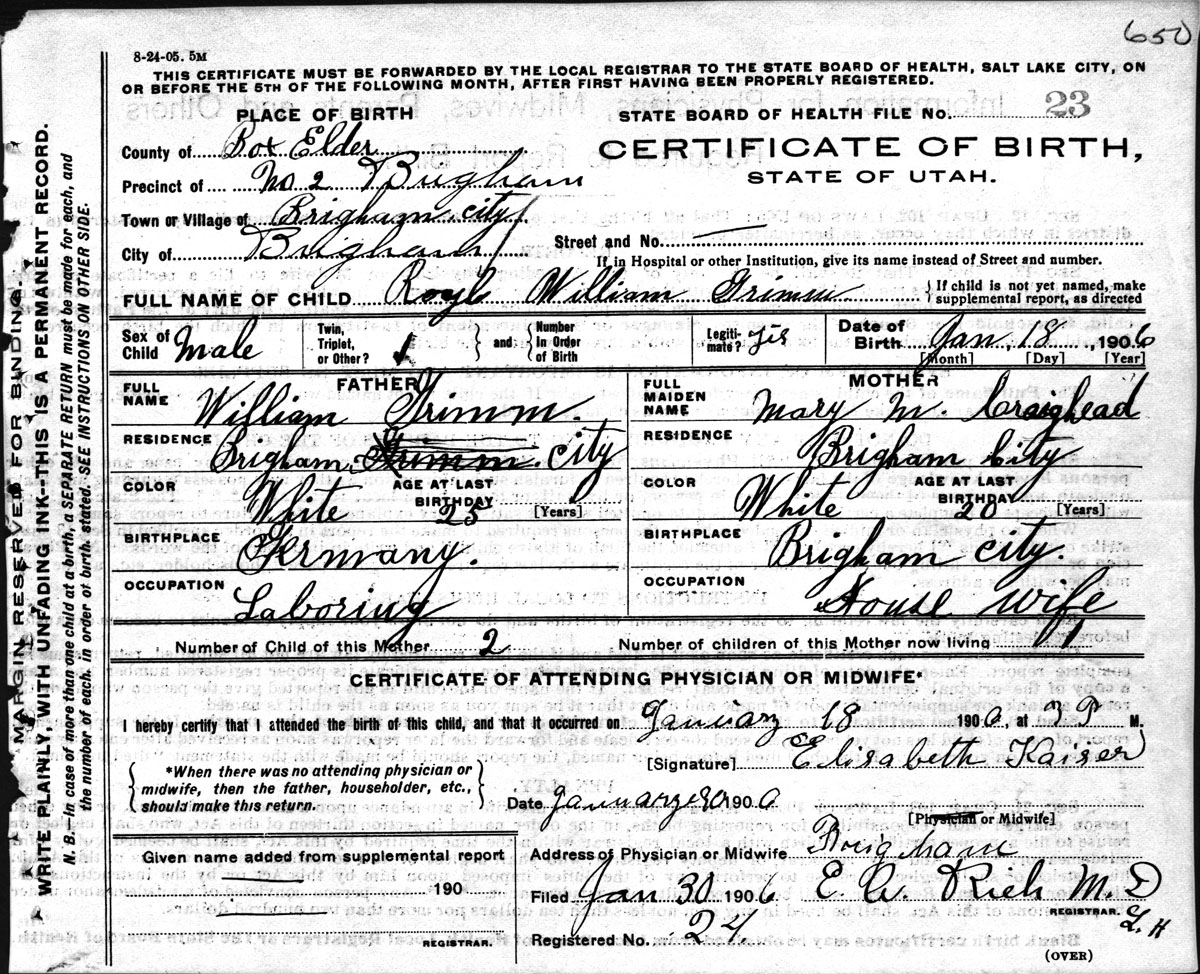 650
8-24-05. 5M
THIS CERTIFICATE MUST BE FORWARDED BY THE LOCAL REGISTRAR TO THE STATE BOARD OF HEALTH, SALT LAKE CITY, ON
OR BEFORE THE 5TH OF THE FOLLOWING MONTH, AFTER FIRST HAVING BEEN PROPERLY REGISTERED.
PLACE OF BIRTH
STATE BOARD OF HEALTH FILE No. 23
County of Box Elder
CERTIFICATE OF BIRTH,
STATE OF UTAH.
Precinct of No 2 Brigham
Town or Village of Brigham city
City of Brigham
Street and No.
If in Hospital or other Institution, give its name instead of Street and number.
FULL NAME OF CHILD William Grimm
{If child is not yet named, make
supplemental report, as directed
Sex of Child Male
Twin, Triplet, or Other?
and
Number In Order of Birth
Legitimate? yes
Date of Birth Jan, 18, 1906
[Month] [Day] [Year]
FATHER
FULL NAME William Grimm.
RESIDENCE Brigham, Grimm. city
COLOR White
AGE AT LAST BIRTHDAY 25 [Years]
BIRTHPLACE Germany.
OCCUPATION Laboring
MOTHER
FULL MAIDEN NAME Mary M. Craighead
RESIDENCE Brigham City
COLOR White
AGE AT LAST BIRTHDAY 20 [Years]
BIRTHPLACE Brigham city.
OCCUPATION House wife
Number of Child of this Mother 2
Number of children of this Mother now living 1
CERTIFICATE OF ATTENDING PHYSICIAN OR MIDWIFE*
I hereby certify that I attended the birth of this child, and that it occurred on January 18 1906, at 3 P M.
{*When there was no attending physician or
midwife, then the father, householder, etc.,
should make this return.}
[Signature] Elisabeth Kaiser
Date January 1906
[Physician or Midwife]
Given name added from supplemental report
190
REGISTRAR.
Address of Physician or Midwife Brigham
Filed Jan 30 1906 E. W. Rich M. D
REGISTRAR.
Registered No. 24.
(OVER)
MARGIN RESERVED FOR BINDING.
WRITE PLAINLY, WITH UNFADING INK--THIS IS A PERMANENT RECORD.
N. B.—In case of more than one child at a birth, a SEPARATE RETURN must be made for each, and
the number of each, in order of birth, stated. SEE INSTRUCTIONS ON OTHER SIDE.